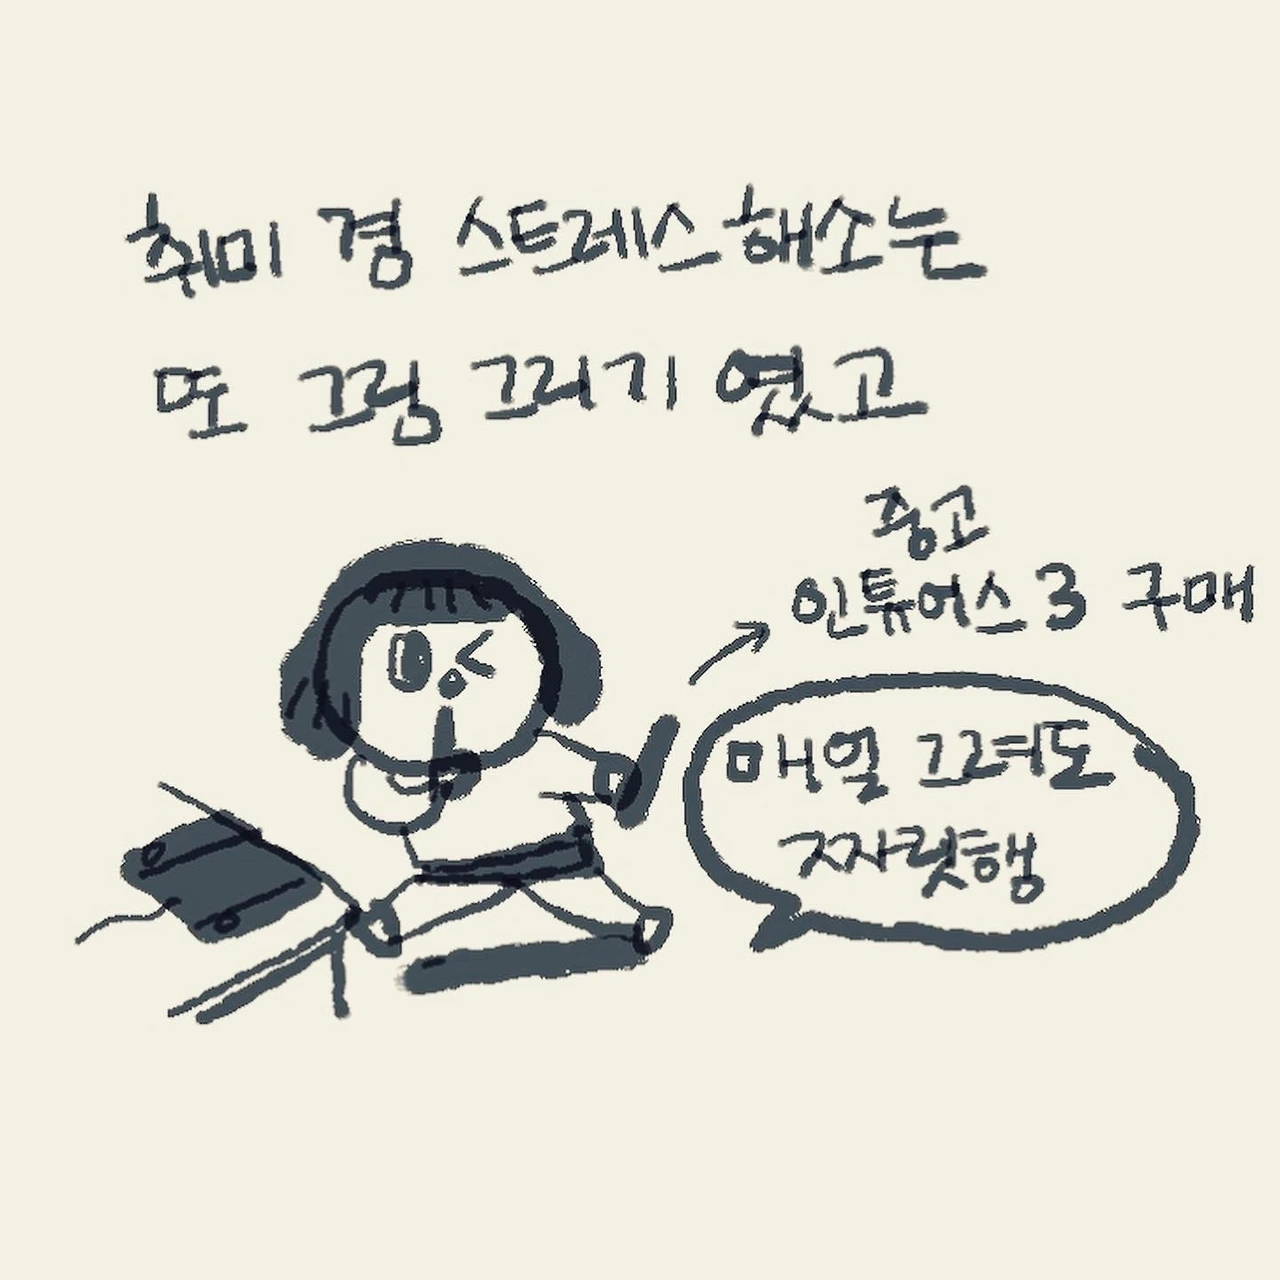 취미 경 스트레스해소는
또 그림 그리기 였고
중고
인튜어스3 구매
매일 그려도
짜릿행